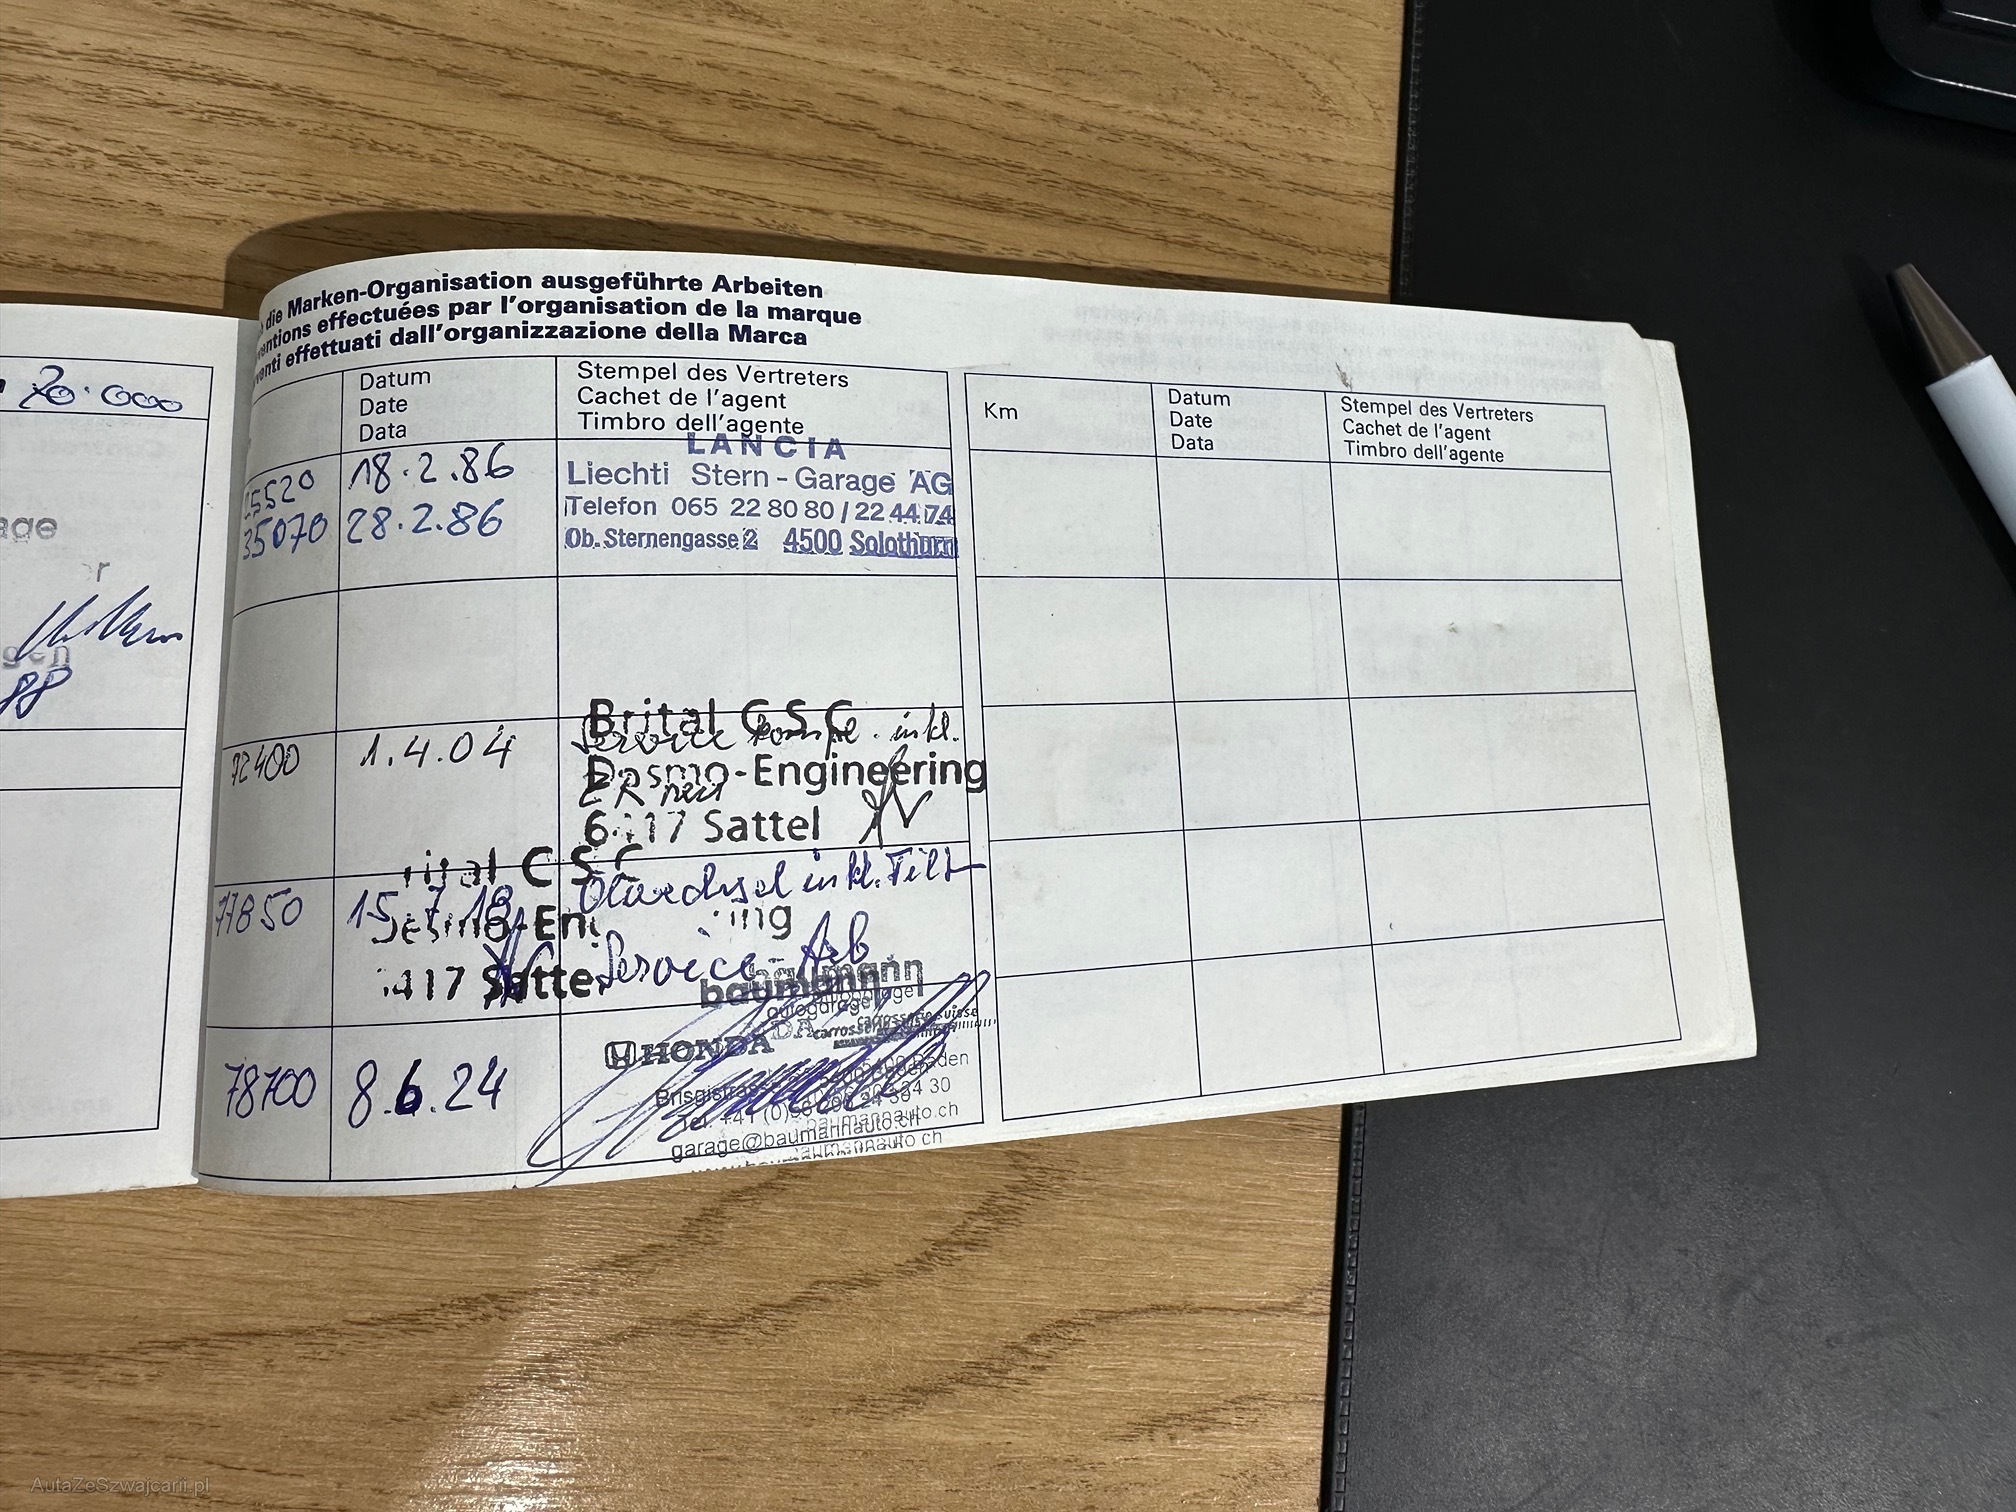 20.000
age
r
gen
88
die Marken-Organisation ausgeführte Arbeiten
entions effectuées par l'organisation de la marque
venti effettuati dall'organizzazione della Marca
Datum
Date
Data
Stempel des Vertreters
Cachet de l'agent
Timbro dell'agente
Km
Datum
Date
Data
Stempel des Vertreters
Cachet de l'agent
Timbro dell'agente
25520 18.2.86
35070 28.2.86
LANCIA
Liechti Stern-Garage AG
Telefon 065 22 80 80 / 22 44 74
Ob. Sternengasse 2 4500 Solothurn
72400 1.4.04
Brital C S C
Service kompl. inkl.
Desmo-Engineering
ZR neu
6417 Sattel
rital C S C
77850 15.7.18 Ölwechsel inkl. Filt
Desmo-En ing
Service Arb
417 Sattel
baumann
autogarage
carrosserie suisse
78700 8.6.24
HONDA
5400 Baden
Tel. +41 (0)56
garage@baumannauto.ch
AutaZeSzwajcarii.pl